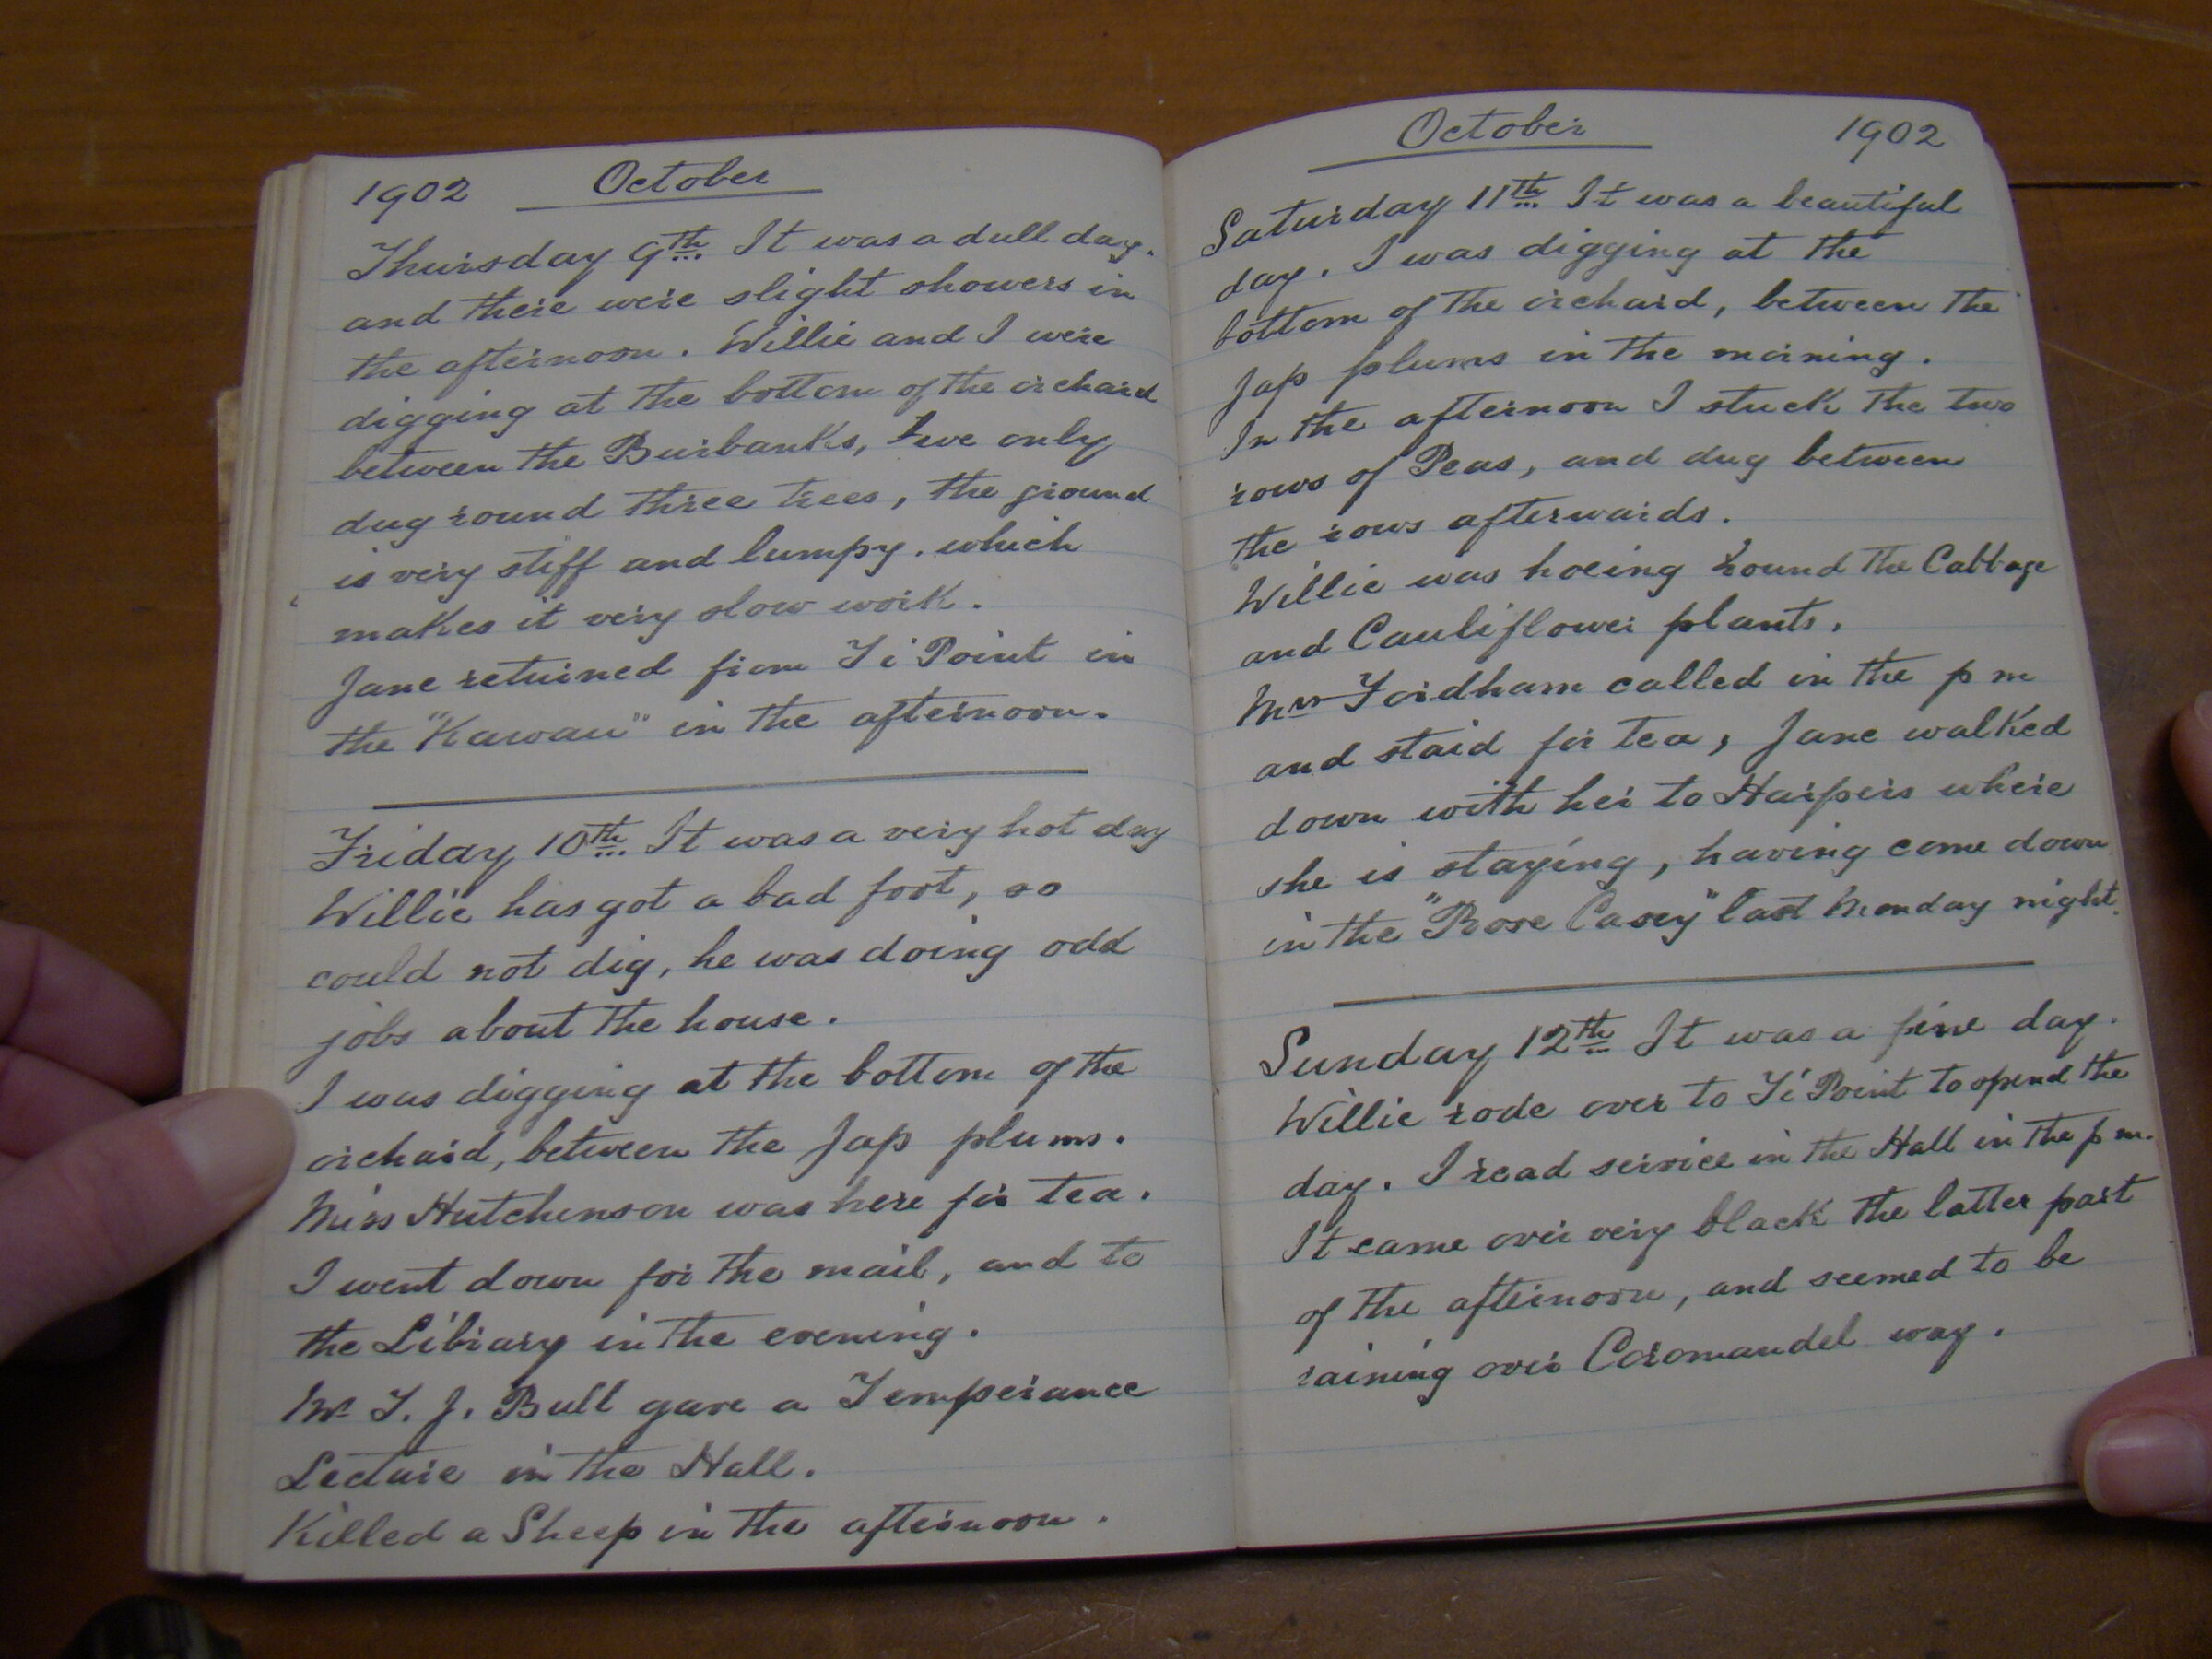 1902 October
Thursday 9th It was a dull day.
and there were slight showers in
the afternoon. Willie and I were
digging at the bottom of the orchard
between the Burbanks, we only
dug round three trees, the ground
is very stiff and lumpy. which
makes it very slow work.
Jane returned from Ti Point in
the "Kawau" in the afternoon.
Friday 10th It was a very hot day
Willie has got a bad foot, so
could not dig, he was doing odd
jobs about the house.
I was digging at the bottom of the
orchard, between the Jap plums.
Miss Hutchinson was here for tea.
I went down for the mail, and to
the Library in the evening.
Mr T. J. Bull gave a Temperance
Lecture in the Hall.
Killed a Sheep in the afternoon.
October 1902
Saturday 11th It was a beautiful
day. I was digging at the
bottom of the orchard, between the
Jap plums in the morning.
In the afternoon I stuck the two
rows of Peas, and dug between
the rows afterwards.
Willie was hoeing round the Cabbage
and Cauliflower plants.
Mrs Fordham called in the p m
and staid for tea, Jane walked
down with her to Harpers where
she is staying, having come down
in the "Rose Casey" last Monday night.
Sunday 12th It was a fine day.
Willie rode over to Ti Point to spend the
day. I read service in the Hall in the p m.
It came over very black the latter part
of the afternoon, and seemed to be
raining over Coromandel way.